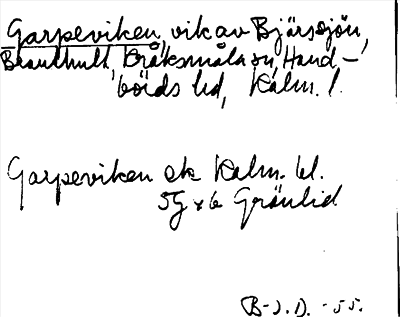 Garpeviken, vik av Bjärsjön,
Branthult, Kråksmåla sn, Hand-
börds hd, Kalm. l.
Garpeviken ek Kalm. bl.
5G x 6 Gränlid
B-J.D. -55.